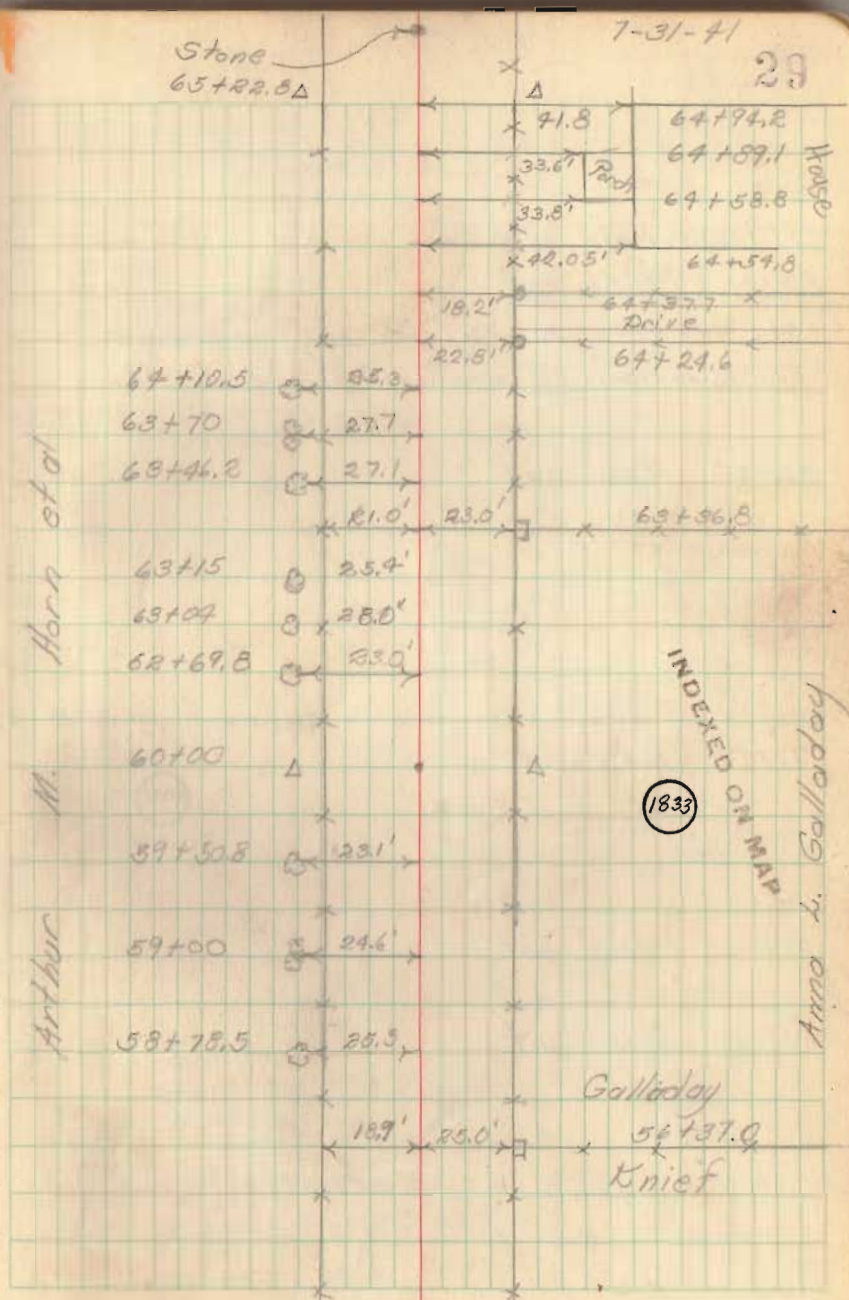 7-31-41
29
Stone
65+22.8
41.8 64+94.2
33.6' Porch 64+89.1
House
33.8' 64+58.8
42.05' 64+54.8
18.2' 64+37.7
Drive
22.8' 64+24.6
64+10.5 25.3
63+70 27.7
63+46.2 27.1
21.0' 23.0' 63+36.8
63+15 25.4'
63+04 28.0'
62+69.8 23.0'
60+00
59+50.8 23.1'
59+00 24.6'
58+78.5 25.3
Galladay
18.9' 25.0' 56+37.0
Knief
Arthur M. Horn et al
INDEXED ON MAP
1833
Anna L. Galladay